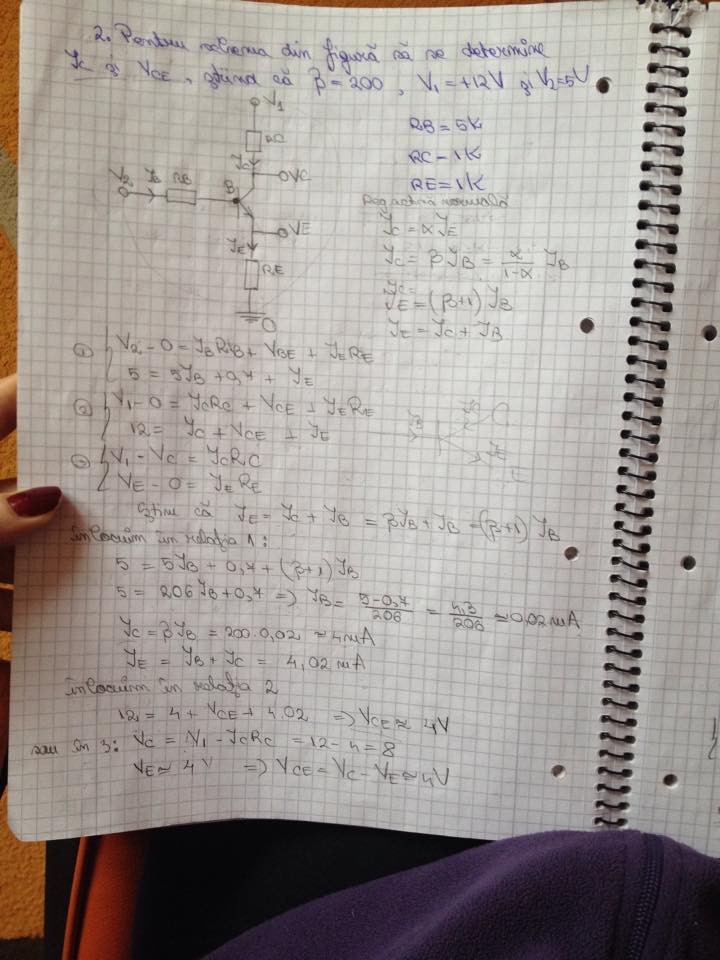 2. Pentru schema din figură să se determine
IC și VCE, știind că β = 200, V1 = +12V și V2 = 5V
V1
RB = 5K
RC
RC = 1K
IC
VC
RE = 1K
V2 IB RB B
Reg activă normală
VE
IC = α IE
IE
IC = β IB = α/(1-α) IB
RE
IC =
IE = (β+1) IB
0
IE = IC + IB
① V2 - 0 = IB RB + VBE + IE RE
5 = 5IB + 0,7 + IE
② V1 - 0 = IC RC + VCE + IE RE
12 = IC + VCE + IE
IB IC C
IE E
③ V1 - VC = IC RC
VE - 0 = IE RE
Știm că IE = IC + IB = βIB + IB = (β+1) IB
înlocuim în relația 1:
5 = 5IB + 0,7 + (β+1) IB
5 = 206 IB + 0,7 => IB = (5-0,7)/206 = 4,3/206 ≈ 0,02 mA
IC = β IB = 200 · 0,02 ≈ 4 mA
IE = IB + IC = 4,02 mA
înlocuim în relația 2
12 = 4 + VCE + 4.02 => VCE ≈ 4V
sau în 3: VC = V1 - IC RC = 12 - 4 = 8
VE ≈ 4 V => VCE = VC - VE ≈ 4V